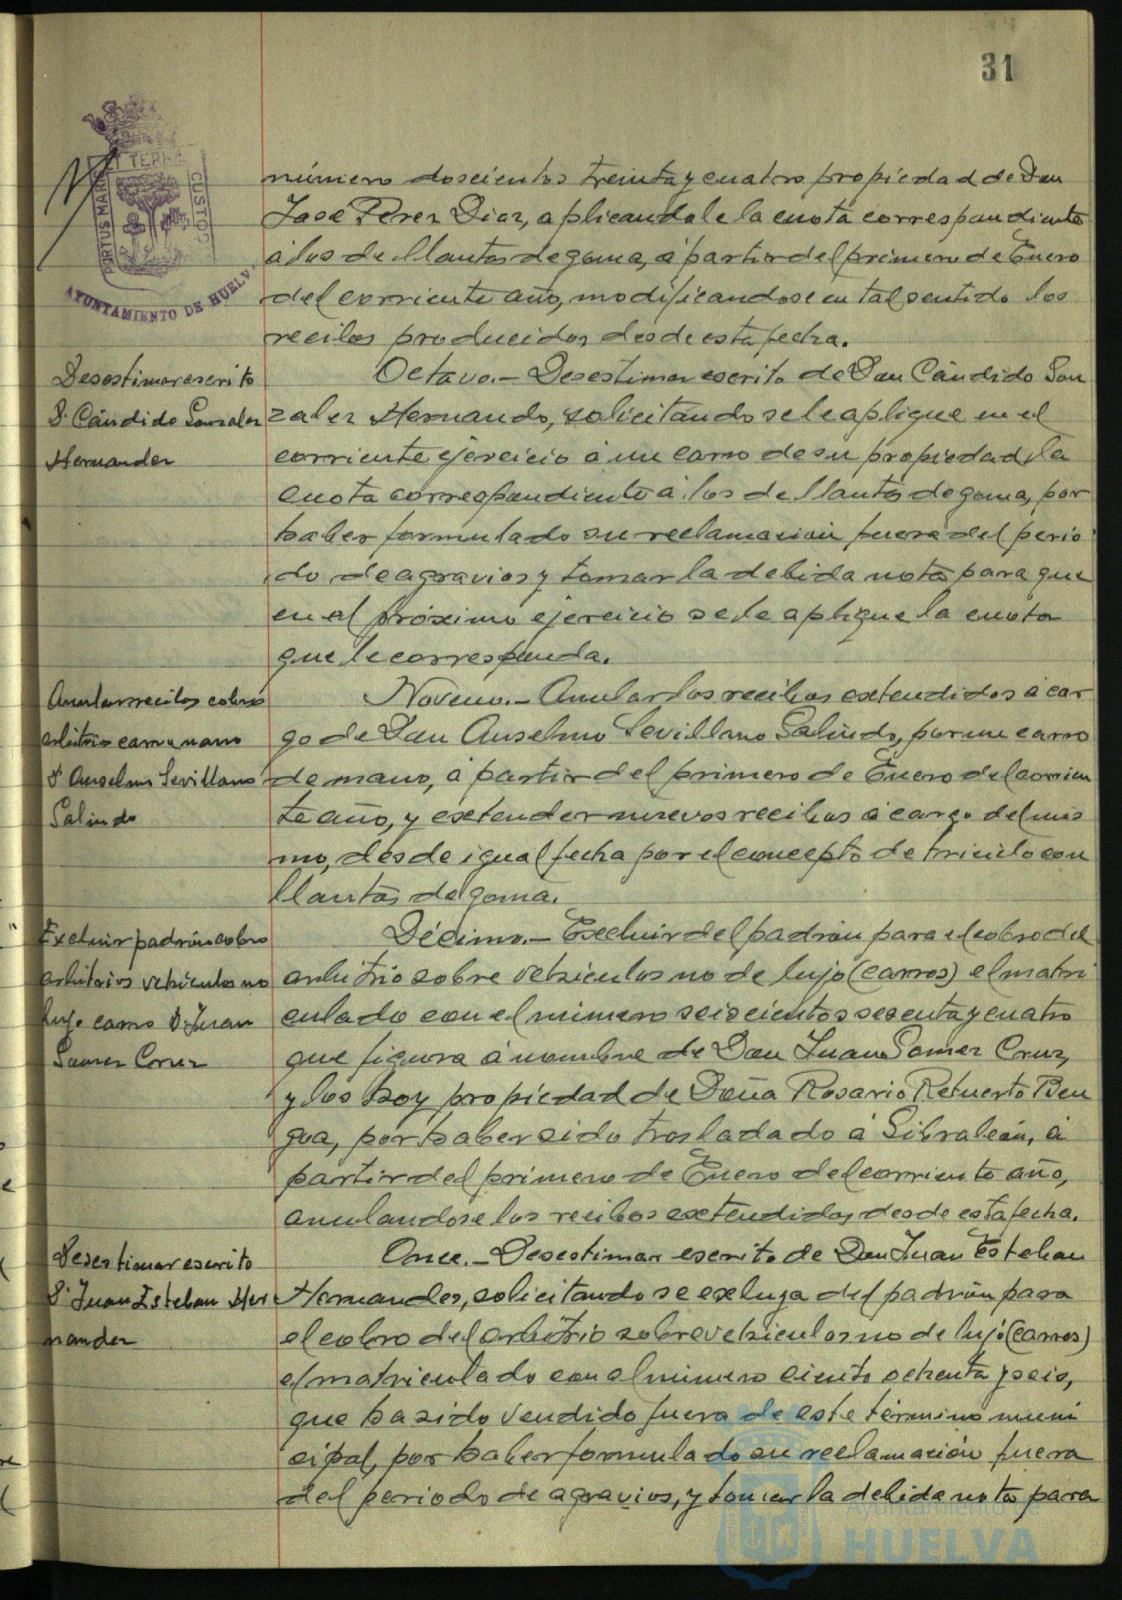 31
PORTUS MARIS ET TERRAE CUSTOS
AYUNTAMIENTO DE HUELVA
número doscientos treinta y cuatro propiedad de Don
José Perez Diaz, aplicandole la cuota correspondiente
á los de llantas de goma, á partir del primero de Enero
del corriente año, modificandose en tal sentido los
recibos producidos desde esta fecha.
Desestimar escrito
D. Cándido Gonzalez
Hernandez
Octavo.- Desestimar escrito de Don Cándido Gon
zalez Hernando, solicitando se le aplique en el
corriente ejercicio á un carro de su propiedad, la
cuota correspondiente á los de llantas de goma, por
haber formulado su reclamación fuera del perio
do de agravios y tomar la debida nota para que
en el próximo ejercicio se le aplique la cuota
que le corresponda.
Anular recibos cobro
arbitrio carro mano
D. Anselmo Sevillano
Galindo
Noveno.- Anular los recibos extendidos á car
go de Don Anselmo Sevillano Galindo, por un carro
de mano, á partir del primero de Enero del corrien
te año, y extender nuevos recibos á cargo del mis
mo, desde igual fecha por el concepto de triciclo con
llantas de goma.
Excluir padrón cobro
arbitrios vehículos no
lujo carro D. Juan
Gomez Cruz
Décimo.- Excluir del padrón para el cobro del
arbitrio sobre vehículos no de lujo (carros) el matri
culado con el número seiscientos sesenta y cuatro
que figura á nombre de Don Juan Gomez Cruz,
y los hoy propiedad de Doña Rosario Retuerto Ben
goa, por haber sido trasladado á Gibraleón, á
partir del primero de Enero del corriente año,
anulandose los recibos extendidos desde esta fecha.
Desestimar escrito
D. Juan Esteban Her
nandez
Once.- Desestimar escrito de Don Juan Esteban
Hernandez, solicitando se excluya del padrón para
el cobro del arbitrio sobre vehículos no de lujo (carros)
el matriculado con el número ciento ochenta y seis,
que ha sido vendido fuera de este término muni
cipal, por haber formulado su reclamación fuera
del periodo de agravios, y tomar la debida nota para
Ayuntamiento de
HUELVA